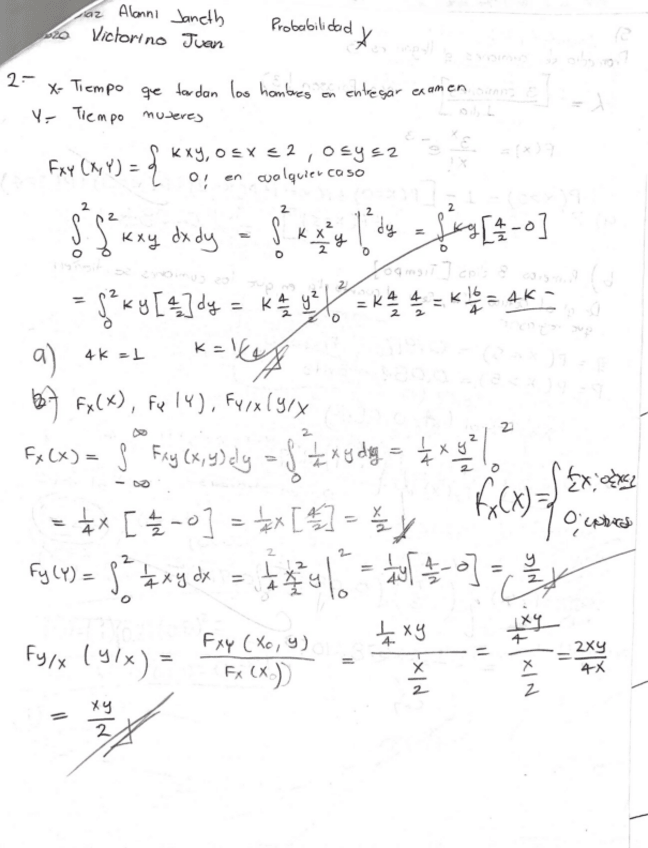 Alanni Janeth
Probabilidad
Victorino Juan
2.- X- Tiempo que tardan los hombres en entregar examen
Y.- Tiempo mujeres
Fxy (x,y) = { Kxy, 0 ≤ x ≤ 2 , 0 ≤ y ≤ 2
0; en cualquier caso
∫₀² ∫₀² Kxy dxdy = ∫₀² K x²/2 y |₀² dy = ∫₀² Ky [4/2 - 0]
= ∫₀² Ky [4/2] dy = K 4/2 y²/2 |₀² = K 4/2 4/2 = K 16/4 = 4K
a) 4K = 1 K = 1/4
b) Fx(x), Fy (y), Fy/x (y/x
Fx(x) = ∫₋∞^∞ Fxy (x,y) dy = ∫₀² 1/4 xy dy = 1/4 x y²/2 |₀²
= 1/4 x [4/2 - 0] = 1/4 x [4/2] = x/2
fx(x) =
0;
Fy(y) = ∫₀² 1/4 xy dx = 1/4 x²/2 y |₀² = 1/4 y [4/2 - 0] = y/2
Fy/x (y/x) = Fxy (x₀, y) / Fx (x₀)) = 1/4 xy / x/2 = 1/4 xy / x/2 = 2xy/4x
= xy/2